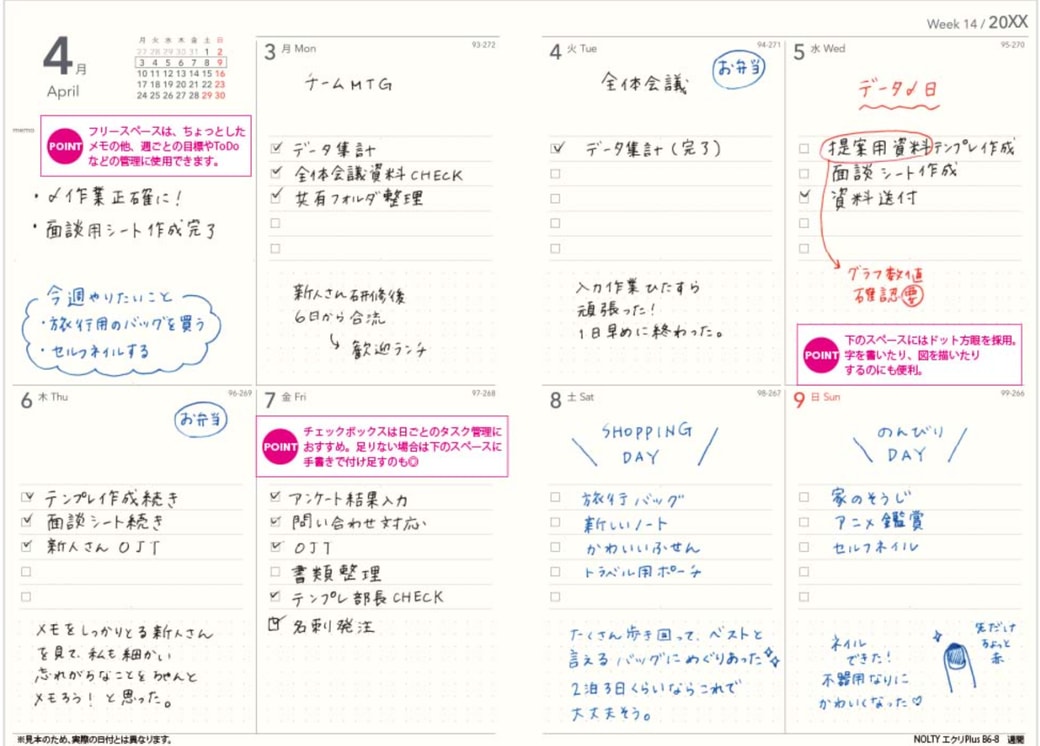 Week 14 / 20XX
4月
April
月 火 水 木 金 土 日
27 28 29 30 31 1 2
3 4 5 6 7 8 9
10 11 12 13 14 15 16
17 18 19 20 21 22 23
24 25 26 27 28 29 30
memo
POINT
フリースペースは、ちょっとした
メモの他、週ごとの目標やToDo
などの管理に使用できます。
・〆作業正確に！
・面談用シート作成完了
今週やりたいこと
・旅行用のバッグを買う
・セルフネイルする
3 月 Mon
93-272
チームMTG
データ集計
全体会議資料CHECK
共有フォルダ整理
新人さん研修後
6日から合流
歓迎ランチ
4 火 Tue
94-271
お弁当
全体会議
データ集計(完了)
入力作業ひたすら
頑張った！
1日早めに終わった。
5 水 Wed
95-270
データ〆日
提案用資料テンプレ作成
面談シート作成
資料送付
グラフ数値
確認要
POINT
下のスペースにはドット方眼を採用。
字を書いたり、図を描いたり
するのにも便利。
6 木 Thu
96-269
お弁当
テンプレ作成続き
面談シート続き
新人さんOJT
メモをしっかりとる新人さん
を見て、私も細かい
忘れがちなことをちゃんと
メモろう！と思った。
7 金 Fri
97-268
POINT
チェックボックスは日ごとのタスク管理に
おすすめ。足りない場合は下のスペースに
手書きで付け足すのも◎
アンケート結果入力
問い合わせ対応
OJT
書類整理
テンプレ部長CHECK
名刺発注
8 土 Sat
98-267
SHOPPING
DAY
旅行バッグ
新しいノート
かわいいふせん
トラベル用ポーチ
たくさん歩き回って、ベストと
言えるバッグにめぐりあった
2泊3日くらいならこれで
大丈夫そう。
9 日 Sun
99-266
のんびり
DAY
家のそうじ
アニメ鑑賞
セルフネイル
ネイル
できた！
不器用なりに
かわいくなった♡
先だけ
ちょっと
赤
※見本のため、実際の日付とは異なります。
NOLTY エクリPlus B6-8 週間